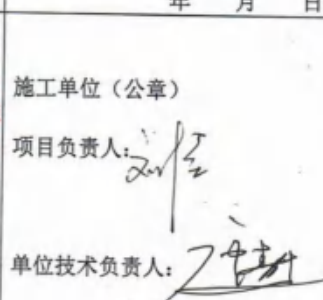 年 月 日
施工单位（公章）
项目负责人：
单位技术负责人：